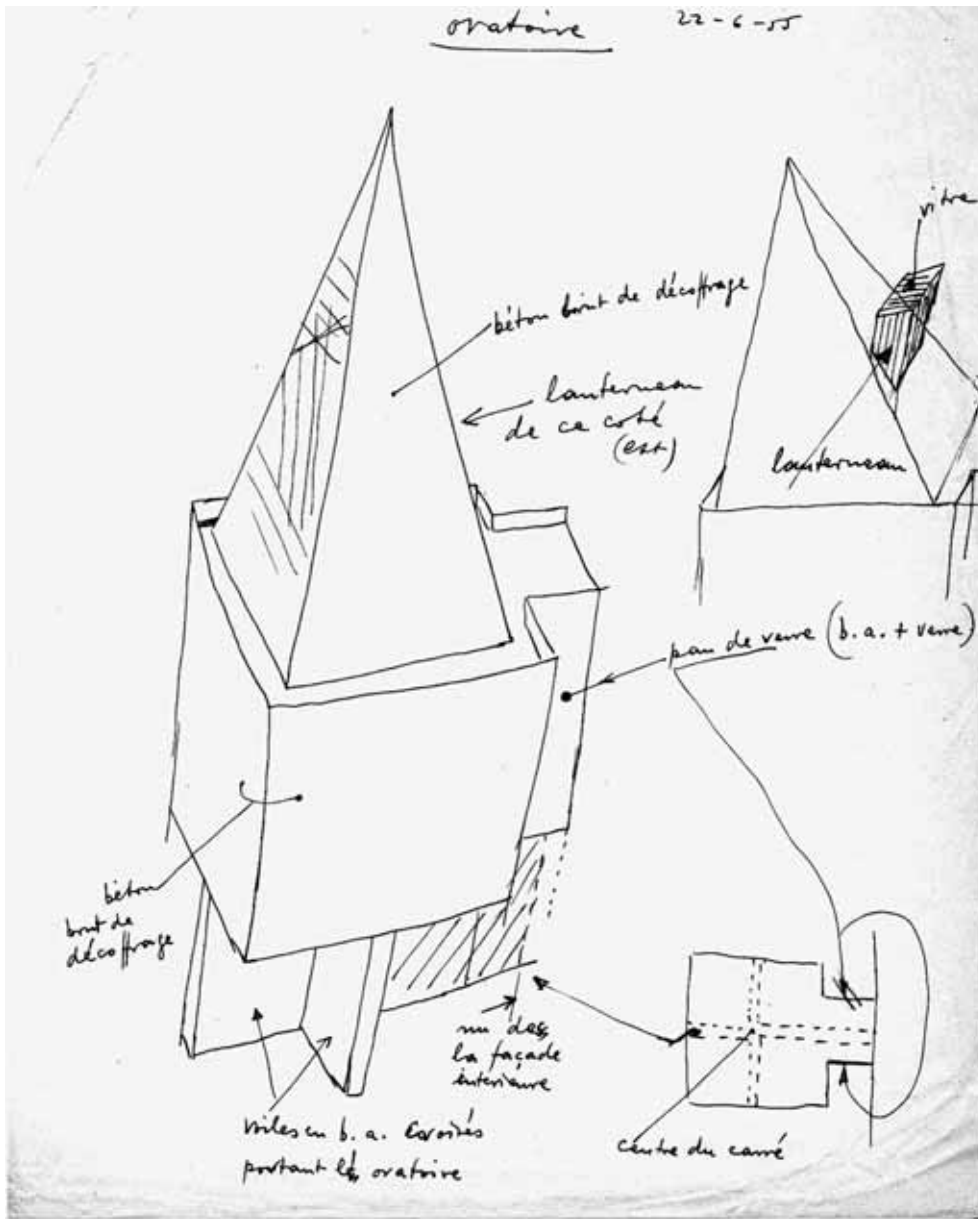 oratoire
22-6-55
vitre
béton brut de décoffrage
lanterneau
de ce coté
(est)
lanterneau
pan de verre (b.a. + verre)
béton
brut de
décoffrage
nu de
la façade
intérieure
voiles en b.a. croisés
portant l' oratoire
centre du carré